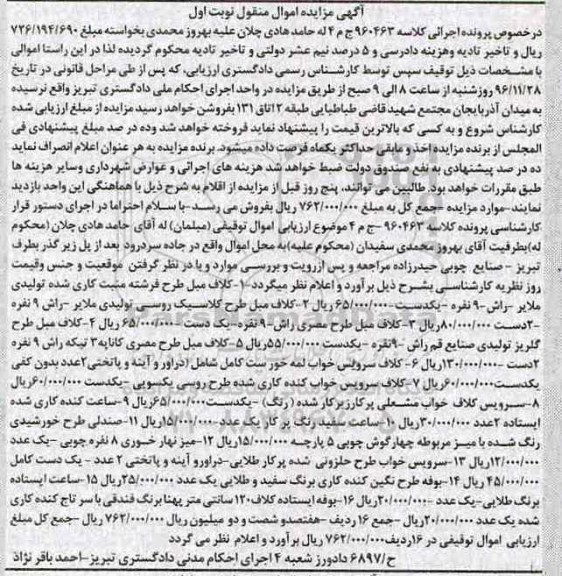 آگهی مزایده اموال منقول نوبت اول
درخصوص پرونده اجرائی کلاسه ۹۶۰۴۶۳ ج م ۴ له حامد هادی چلان علیه بهروز محمدی بخواسته مبلغ ۷۳۶/۱۹۴/۶۹۰
ریال و تاخیر تادیه وهزینه دادرسی و ۵ درصد نیم عشر دولتی و تاخیر تادیه محکوم گردیده لذا در این راستا اموالی
با مشخصات ذیل توقیف سپس توسط کارشناس رسمی دادگستری ارزیابی، که پس از طی مراحل قانونی در تاریخ
۹۶/۱۱/۲۸ روزشنبه از ساعت ۸ الی ۹ صبح از طریق مزایده در واحد اجرای احکام ملی دادگستری تبریز واقع نرسیده
به میدان آذربایجان مجتمع شهید قاضی طباطبایی طبقه ۲ اتاق ۱۳۱ بفروشن خواهد رسید مزایده از مبلغ ارزیابی شده
کارشناس شروع و به کسی که بالاترین قیمت را پیشنهاد نماید فروخته خواهد شد وده در صد مبلغ پیشنهادی فی
المجلس از برنده مزایده اخذ و مابقی حداکثر یکماه فرصت داده میشود. برنده مزایده به هر عنوان اعلام انصراف نماید
ده در صد پیشنهادی به نفع صندوق دولت ضبط خواهد شد هزینه های اجرائی و عوارض شهرداری وسایر هزینه ها
طبق مقررات خواهد بود. طالبین می توانند، پنج روز قبل از مزایده از اقلام به شرح ذیل با هماهنگی این واحد بازدید
نمایند-موارد مزایده –جمع کل به مبلغ ۷۶۲/۰۰۰/۰۰۰ ریال بفروش می رسد-با سلام احتراما در اجرای دستور قرار
کارشناسی پرونده کلاسه ۹۶۰۴۶۳ –ج م ۴ موضوع ارزیابی اموال توقیفی (مبلمان) له آقای حامد هادی چلان (محکوم
له)بطرفیت آقای بهروز محمدی سفیدان (محکوم علیه)به محل اموال واقع در جاده سردرود بعد از پل زیر گذر بطرف
تبریز – صنایع چوبی حیدرزاده مراجعه و پس ازرویت و بررسی موارد و با در نظر گرفتن موقعیت و جنس وقیمت
روز نظریه کارشناسی بشرح ذیل برآورد و اعلام نظر میگردد-۱-کلاف مبل طرح فرشته منبت کاری شده تولیدی
ملایر –راش-۹ نفره –یکدست-۶۵/۰۰۰/۰۰۰ ریال ۲-کلاف مبل طرح کلاسیک روسی تولیدی ملایر –راش ۹ نفره
-۲دست ۸۰/۰۰۰/۰۰۰ریال ۳-کلاف مبل طرح مصری راش-۹ نفره-یک دست ۶۵/۰۰۰/۰۰۰ ریال ۴-کلاف مبل طرح
گلریز تولیدی صنایع قم راش -۹نفره –یکدست ۵۵/۰۰۰/۰۰۰ریال ۵-کلاف مبل طرح مصری کاناپه ۳ تیکه راش ۹ نفره
۲دست –۱۳۰/۰۰۰/۰۰۰ریال ۶-کلاف سرویس خواب لمه خور ست کامل شامل (دراور و آینه و پاتختی۲عدد بدون کفی
یکدست۶۰/۰۰۰/۰۰۰ ریال ۷-کلاف سرویس خواب کنده کاری شده طرح روسی یکسویی –یکدست ۶۰/۰۰۰/۰۰۰ریال
۸-سرویس کلاف خواب مشعلی پرکارزیرکار شده (رنگ) –یکدست۶۵/۰۰۰/۰۰۰ریال ۹-ساعت کنده کاری شده
ایستاده ۲عدد ۳۰/۰۰۰/۰۰۰ریال ۱۰-ساعت سفید رنگ پر کار یک عدد-۱۵/۰۰۰/۰۰۰ریال ۱۱-صندلی طرح خورشیدی
رنگ شده با میز مربوطه چهارگوش چوبی ۵ پارچه ۱۵/۰۰۰/۰۰۰ریال ۱۲-میز نهار خوری ۸ نفره چوبی –یک عدد
۱۲/۰۰۰/۰۰۰ریال ۱۳-سرویس خواب طرح حلزونی شده پرکار طلایی-دراورو آینه و پاتختی ۲ عدد – یک دست کامل
۴۵/۰۰۰/۰۰۰ ریال ۱۴-بوفه طرح نگین کنده کاری برنگ سفید و طلایی یک عدد ۲۵/۰۰۰/۰۰۰ریال ۱۵-ساعت ایستاده
برنگ طلایی-یک عدد –۲۰/۰۰۰/۰۰۰ریال ۱۶-بوفه ایستاده کلاف ۱۲۰ سانتی متر پهنا برنگ فندقی با سر تاج کنده کاری
شده یک عدد ۲۰/۰۰۰/۰۰۰ریال –جمع ۱۶ ردیف –هفتصدو شصت و دو میلیون ریال ۷۶۲/۰۰۰/۰۰۰ ریال –جمع کل مبلغ
ارزیابی اموال توقیفی در ۱۶ردیف۷۶۲/۰۰۰/۰۰۰ ریال برآورد و اعلام نظر می گردد
ح/۶۸۹۷ دادورز شعبه ۴ اجرای احکام مدنی دادگستری تبریز-احمد باقر نژاد